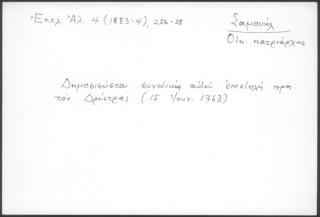 Ἐκκλ. Ἀλ. 4 (1883-4), 256-58
Σαμουήλ
Οἰκ. πατριάρχης
Δημοσιεύεται συνοδική αὐτοῦ ἐπιστολή πρὸς
τὸν Δρύστρας (15 Ἰουν. 1763)